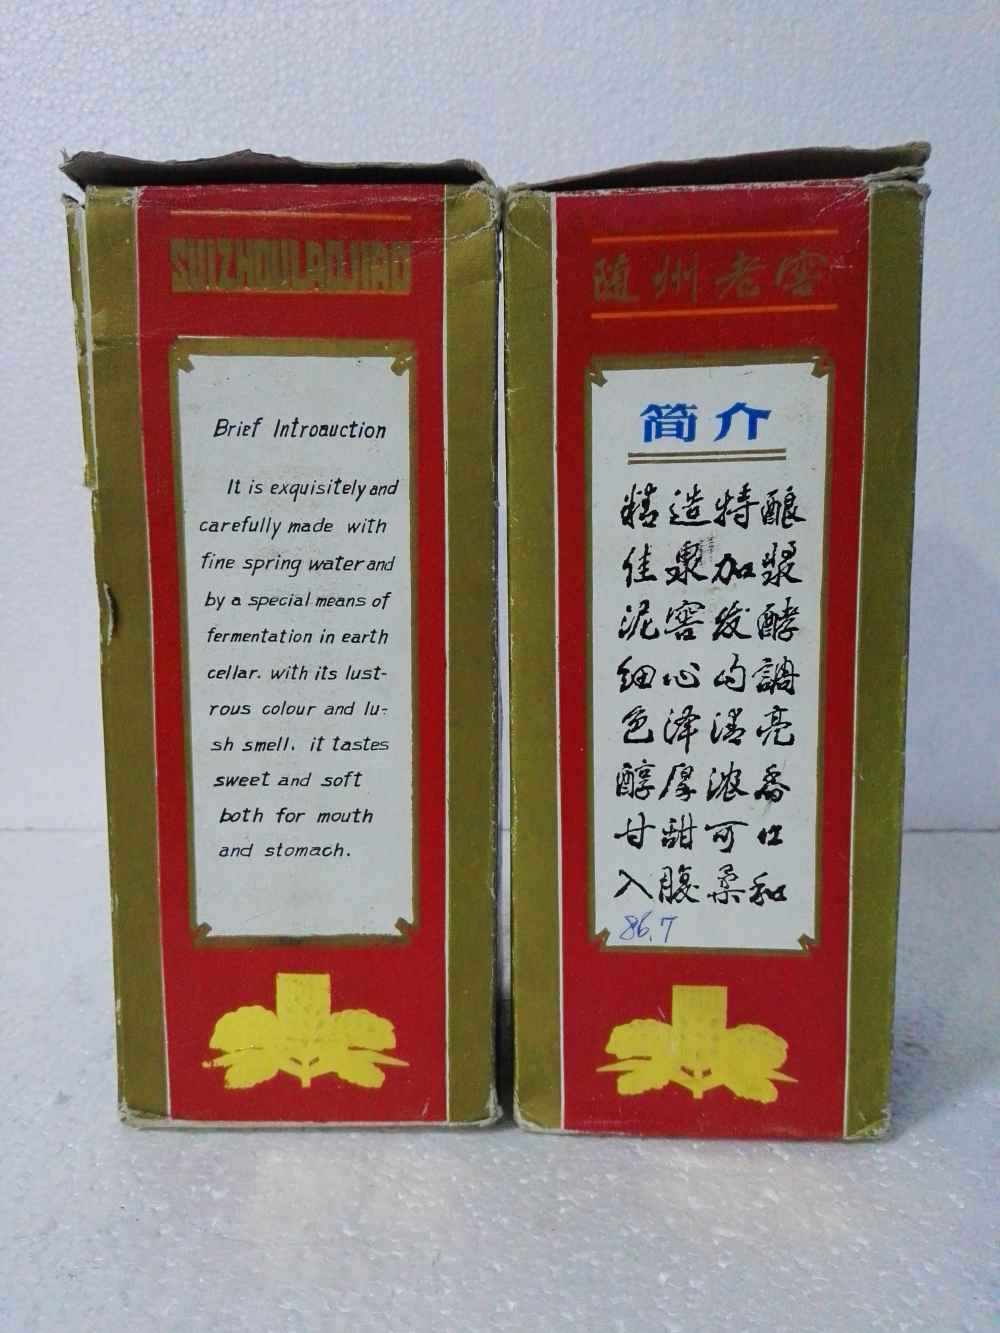 SUIZHOULAOJIAO
Brief Introduction
It is exquisitely and
carefully made with
fine spring water and
by a special means of
fermentation in earth
cellar. with its lust-
rous colour and lu-
sh smell. it tastes
sweet and soft
both for mouth
and stomach.
随州老窖
简介
精造特酿
佳泉加浆
泥窖发酵
细心勾調
色泽清亮
醇厚浓香
甘甜可口
入腹柔和
86.7